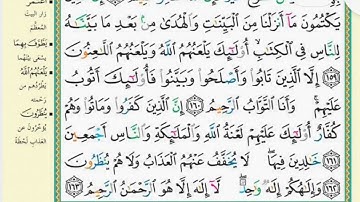 يَكْتُمُونَ مَآ أَنزَلْنَا مِنَ ٱلْبَيِّنَٰتِ وَٱلْهُدَىٰ مِنۢ بَعْدِ مَا بَيَّنَّٰهُ
لِلنَّاسِ فِى ٱلْكِتَٰبِ أُو۟لَٰٓئِكَ يَلْعَنُهُمُ ٱللَّهُ وَيَلْعَنُهُمُ ٱللَّٰعِنُونَ
١٥٩ إِلَّا ٱلَّذِينَ تَابُوا۟ وَأَصْلَحُوا۟ وَبَيَّنُوا۟ فَأُو۟لَٰٓئِكَ أَتُوبُ
عَلَيْهِمْ وَأَنَا ٱلتَّوَّابُ ٱلرَّحِيمُ ١٦٠ إِنَّ ٱلَّذِينَ كَفَرُوا۟ وَمَاتُوا۟ وَهُمْ
كُفَّارٌ أُو۟لَٰٓئِكَ عَلَيْهِمْ لَعْنَةُ ٱللَّهِ وَٱلْمَلَٰٓئِكَةِ وَٱلنَّاسِ أَجْمَعِينَ
١٦١ خَٰلِدِينَ فِيهَا لَا يُخَفَّفُ عَنْهُمُ ٱلْعَذَابُ وَلَا هُمْ يُنظَرُونَ
١٦٢ وَإِلَٰهُكُمْ إِلَٰهٌ وَٰحِدٌ لَّآ إِلَٰهَ إِلَّا هُوَ ٱلرَّحْمَٰنُ ٱلرَّحِيمُ ١٦٣
زار البيت
المُعظَّم
يَطَّوَّفَ بِهِمَا
يسعى بينهما
يَلْعَنُهُمُ اللَّهُ
يطردهم من
رحمته
يُنظَرُونَ
يُؤخَّرون عن
العذاب لحظة